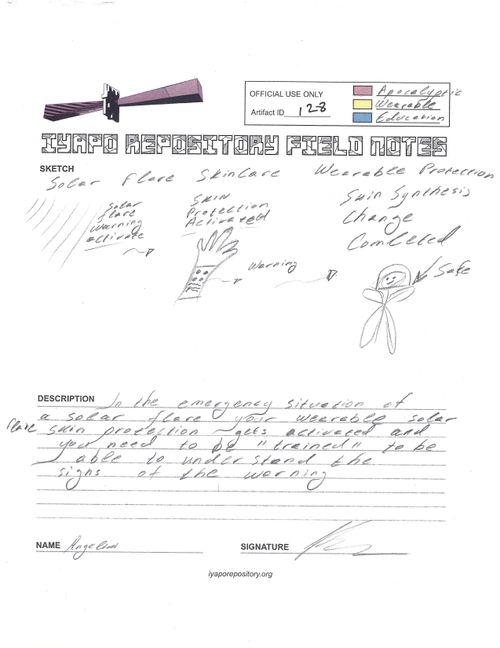 OFFICIAL USE ONLY
Artifact ID 128
Apocalyptic
Wearable
Education
IYAPO REPOSITORY FIELD NOTES
SKETCH
Solar Flare Skincare Wearable Protection
Solar
flare
Warning
activate
Skin
Protection
Activated
Skin Synthesis
Change
Comleted
Warning
Safe
DESCRIPTION In the emergency situation of
a solar flare your wearable solar
flare skin protection gets activated and
you need to be "trained" to be
able to understand the
signs of the warning
NAME
SIGNATURE
iyaporepository.org